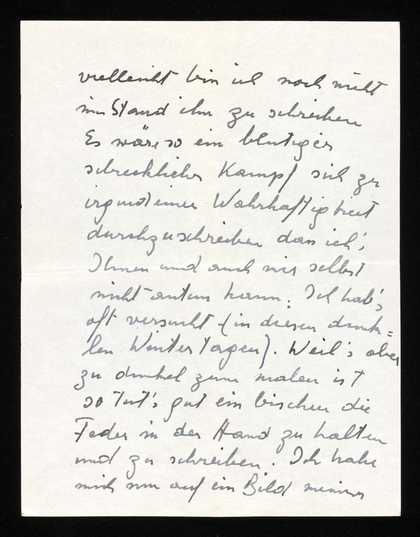 vielleicht bin ich noch nicht
im Stand ihn zu schreiben
Es wäre so ein blutiger
schrecklicher Kampf sich zu
irgendeiner Wahrhaftigkeit
durchzuschreiben dass ich's,
Ihnen und auch mir selbst
nicht antun kann. Ich hab's
oft versucht (in diesen dunk=
len Wintertagen). Weil's aber
zu dunkel zum malen ist
so tut's gut ein bischen die
Feder in der Hand zu halten
und zu schreiben. Ich habe
mich nun auf ein Bild meines